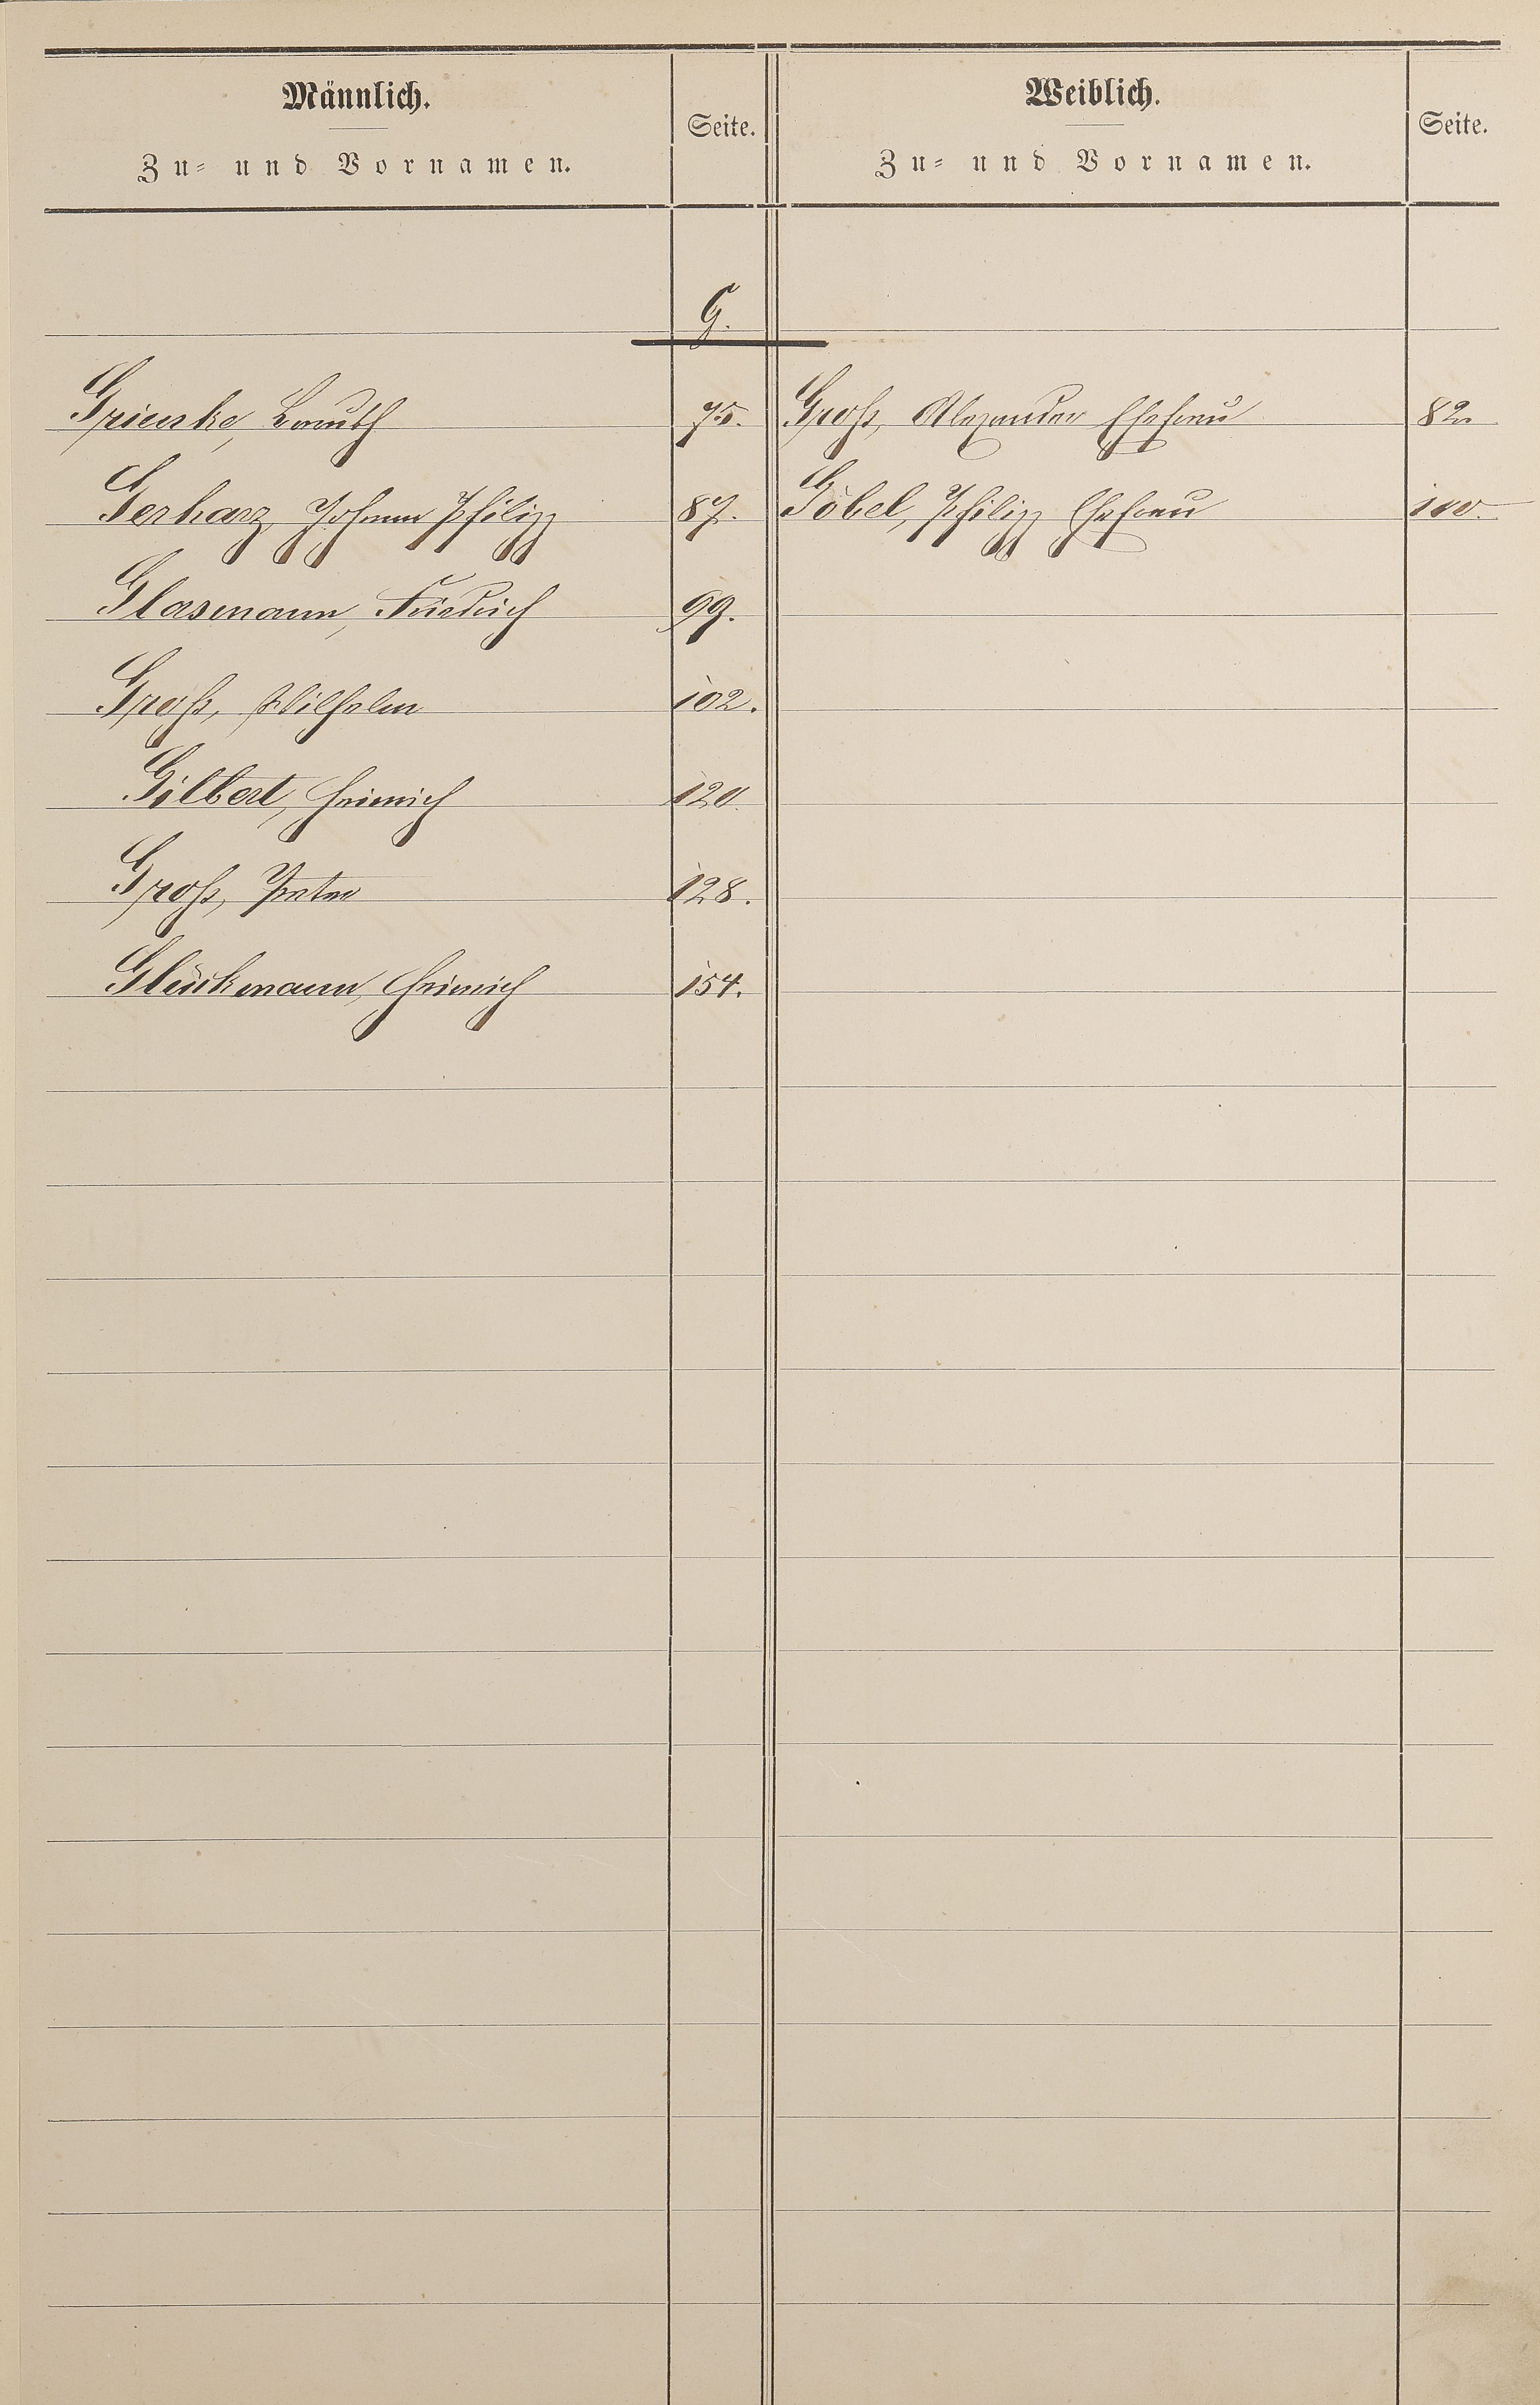 Männlich.
Zu- und Vornamen.
Seite.
Weiblich.
Zu- und Vornamen.
Seite.
G.
Grienke, 75.
Groß, Alexander Ehefrau 82.
Gerharz, Johann Philipp 87.
Göbel, Philipp Ehefrau 100.
Glasmann, Friedrich 99.
Groß, Wilhelm 102.
Gilbert, Heinrich 120.
Groß, Peter 128.
Glückmann, Heinrich 154.